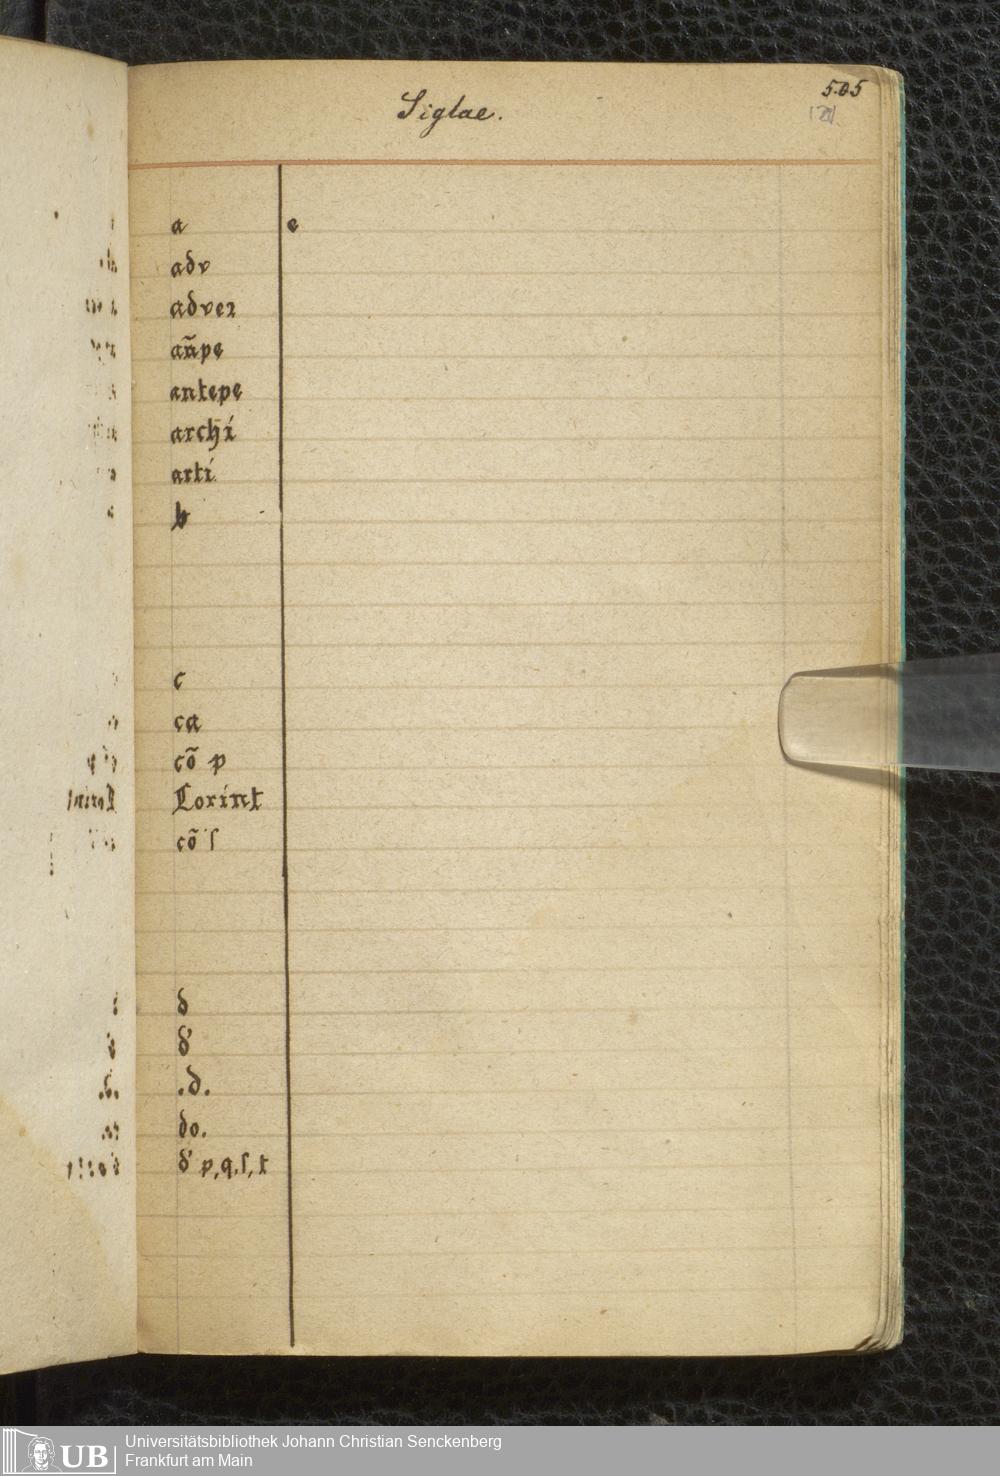 505
Siglae.
a e
adv
adver
an̄pe
antepe
archi
arti
b
c
ca
cō p
Corint
cō ſ
d
d'
.d.
do.
d' p, q, ſ, t
UB Universitätsbibliothek Johann Christian Senckenberg
Frankfurt am Main